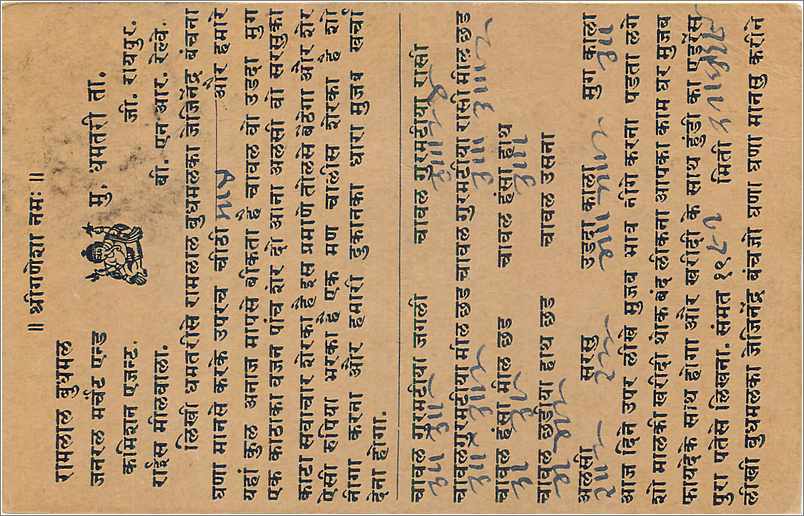 ॥ श्रीगणेशा नमः॥
रामलाल बुधमल
जनरल मर्चंट एन्ड
कमिशन एजन्ट.
राईस मीलवाला.
मु. धमतरी ता.
जी. रायपुर.
बी. एन. आर. रेल्वे.
लिखी धमतरीसे रामलाल बुधमलका जीजिनेंद्र बंचना
घणा मानसे करके उपरंच चीठी और हमारे
यहां कुल अनाज मापसे बीकता है चावल वो उडदा मुग
एक काठाका वजन पांच शेर दो आना अलसी वो सरसुका
काटा सवाचार शेरका है इस प्रमाणे तोलसे बठेगा और शेर
ऐसी रुपिया भरका है एक मण चांलीस शेरका है शो
नीगा करना और हमारी दुकानका धारा मुजब खर्चा
देना होगा.
चावल गुरमटीया जंगली चावल गुरमटीया रासी
चावल गुरमटीया मील छड चावल गुरमटीया रासी मील छड
चावल हंसा मील छड चावल हंसा हाथ
चावल छडीया हाथ छड चावल उसना
अलसी सरसु उडदा काला मुग काला
आज दिने उपर लीखे मुजब भाव नीगे करना पडता लगे
शो मालकी खरीदी थोक बंद लीकना आपका काम घर मुजब
फायदेके साथ होगा और खरीदी के साथ हुंडी का एडरेस
पुरा पतेसे लिखना. संमत १९८१ मिती
लीखी बुधमलका जीजिनेंद्र बंचजो घणा घणा मानसु करीने